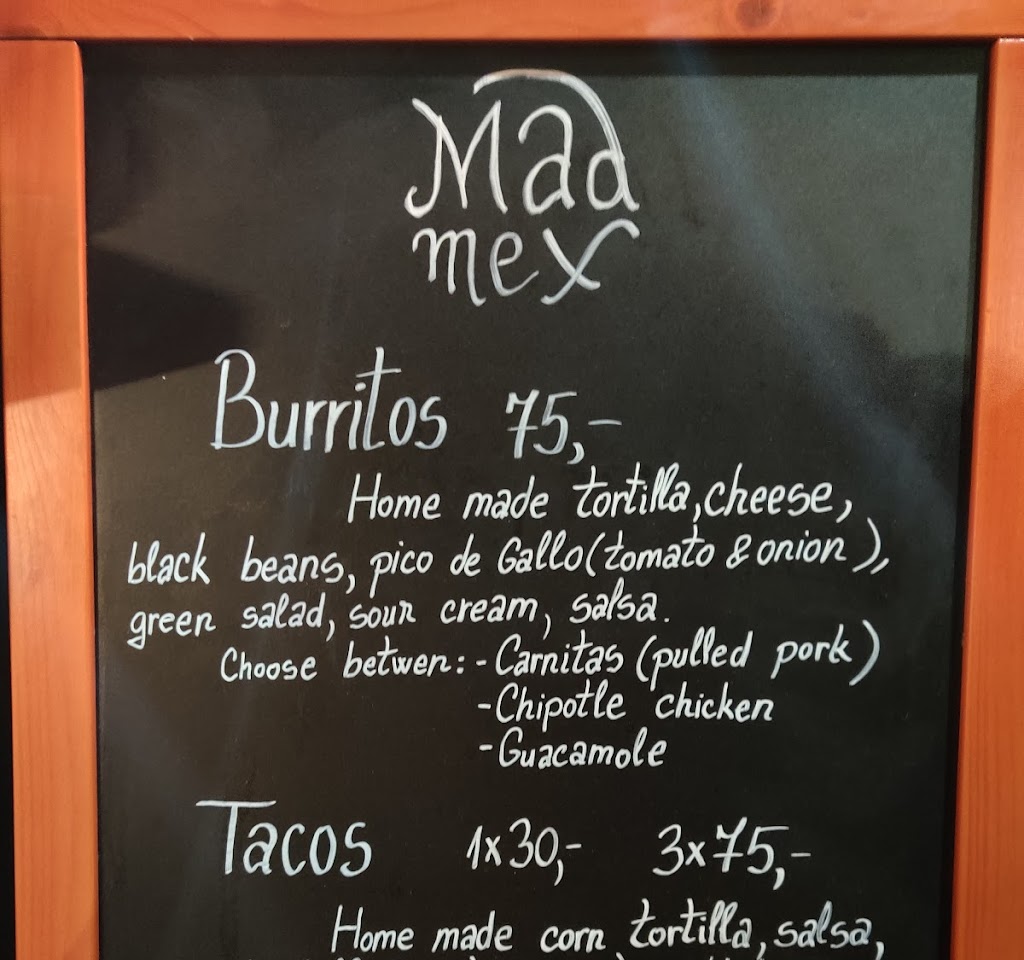 Mad
mex
Burritos 75,-
Home made tortilla, cheese,
black beans, pico de Gallo (tomato & onion),
green salad, sour cream, salsa.
Choose betwen: - Carnitas (pulled pork)
- Chipotle chicken
- Guacamole
Tacos 1x30,- 3x75,-
Home made corn tortilla, salsa,